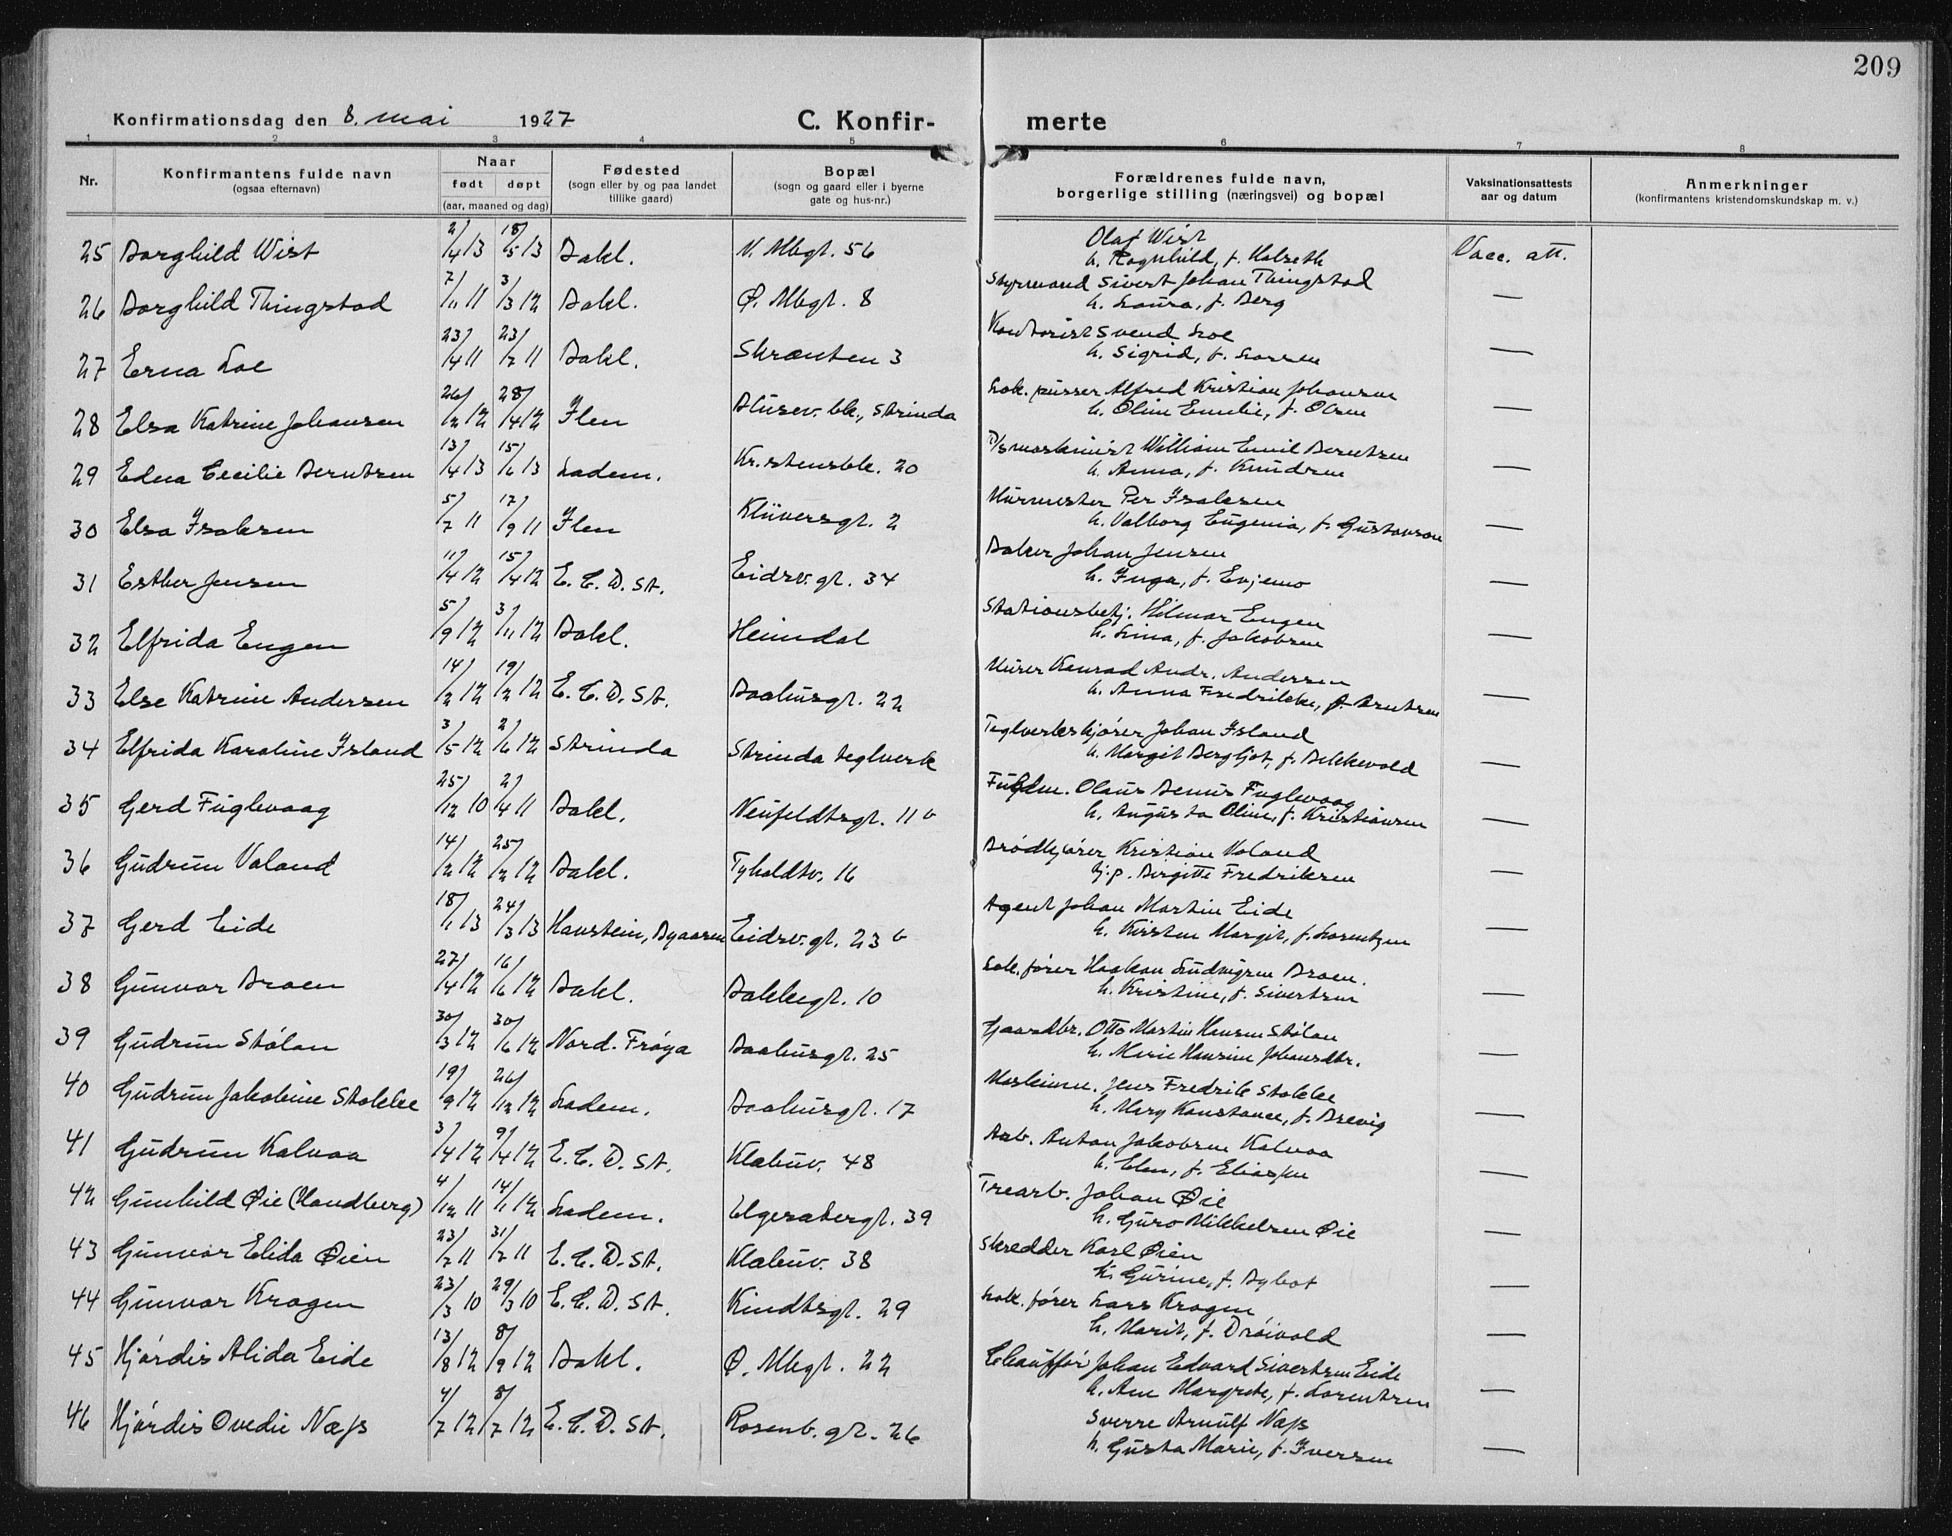 209
Konfirmationsdag den 8. mai 1927 C. Konfirmerte
1 2 3 4 5 6 7 8
Nr. Konfirmantens fulde navn (ogsaa efternavn) Naar født døpt (aar, maaned og dag) Fødested (sogn eller by og paa landet tillike gaard) Bopæl (sogn og gaard eller i byerne gate og hus-nr.) Forældrenes fulde navn, borgerlige stilling (næringsvei) og bopæl Vaksinationsattests aar og datum Anmerkninger (konfirmantens kristendomskundskap m. v.)
25 Borghild Wist 2/4 13 18/5 13 Bakl. N. Mbgt. 56 Olaf Wist
h. Ragnhild, f. Halseth Vacc. att.
26 Borghild Thingstad 7/11 11 3/3 12 Bakl. Ø. Mbgt. 8 Styrmand Sivert Johan Thingstad
h. Laura, f. Berg —
27 Erna Loe 23/4 11 23/7 11 Bakl. Skrænten 3 Kontorist Svend Loe
h. Sigrid, f. Larsen —
28 Elsa Katrine Johansen 26/2 12 28/4 12 Ilen Stusev. bk., Strinda Lok. pusser Alfred Kristian Johansen
h. Oline Emelie, f. Olsen —
29 Edna Cecilie Berntsen 13/4 13 15/6 13 Ladem. Kr.stensbk. 20 D/smaskinist William Emil Berntsen
h. Anna, f. Knudsen —
30 Elsa Isaksen 5/7 11 17/9 11 Ilen Klüversgt. 2 Murmester Per Isaksen
h. Valborg Eugenia, f. Gustavson —
31 Esther Jensen 11/4 12 15/4 12 E. C. D. St. Eidsv. gt. 34 Baker Johan Jensen
h. Inga, f. Evjemo —
32 Elfrida Engen 5/9 12 3/11 12 Bakl. Heimdal Stationsbetj. Hilmar Engen
h. Lina, f. Jakobsen —
33 Else Katrine Andersen 14/2 12 19/2 12 E. C. D. St. Baahusgt. 22 Murer Konrad Andr. Andersen
h. Anna Fredrikke, f. Arntsen —
34 Elfrida Karoline Island 3/5 12 2/6 12 Strinda Strinda teglverk Teglverkskjører Johan Island
h. Margit Bergljot, f. Bekkevold —
35 Gerd Fuglevaag 25/12 10 2/4 11 Bakl. Neufeldtsgt. 11 b Olaus Benus Fuglevaag
h. Augusta Oline, f. Kristiansen —
36 Gudrun Valand 14/2 12 25/2 12 Bakl. Tyholdtv. 16 Brødkjører Kristian Valand
Birgitte Fredriksen —
37 Gerd Eide 18/1 13 24/3 13 Havstein, Byaasen Eidsv. gt. 23 b Agent Johan Martin Eide
h. Kirsten Margit, f. Lorentzen —
38 Gunvor Braen 27/4 12 16/6 12 Bakl. Bakkegt. 10 Lok. fører Haakon Ludvigsen Braen.
h. Kristine, f. Sivertsen —
39 Gudrun Stølan 30/3 12 30/6 12 Nord-Frøya Baahusgt. 25 Gaardbr. Otto Martin Hansen Stølan
h. Marie Hansine Johansdtr. —
40 Gudrun Jakobine Stokke 19/9 12 26/12 12 Ladem. Baahusgt. 17 Maskinm. Jens Fredrik Stokke
h. Mary Konstance, f. Brevig —
41 Gudrun Kalvaa 3/4 12 9/4 12 E. C. D. St. Klæbuv. 48 Arb. Anton Jakobsen Kalvaa
h. Elen, f. Eliassen —
42 Gunhild Øie (Handberg) 4/12 11 14/1 12 Ladem. Ulgesætergt. 39 Trearb. Johan Øie
h. Guro Mikkelsen Øie —
43 Gunvor Elida Øien 23/7 11 31/7 11 E. C. D. St. Klæbuv. 38 Skredder Karl Øien
h. Gurine, f. Dybot —
44 Gunvor Kragen 23/3 10 29/3 10 E. C. D. St. Kindtsgt. 29 Lok. fører Lars Kragen
h. Marit, f. Drøivold —
45 Hjørdis Alida Eide 13/8 12 8/9 12 Bakl. Ø. Mbgt. 22 Chauffør Johan Edvard Sivertsen Eide
h. Ane Margrete, f. Lorentsen —
46 Hjørdis Ovedie Næss 4/7 12 8/7 12 E. C. D. St. Rosenb. gt. 26 Sverre Arnulf Næss
h. Gusta Marie, f. Iversen —